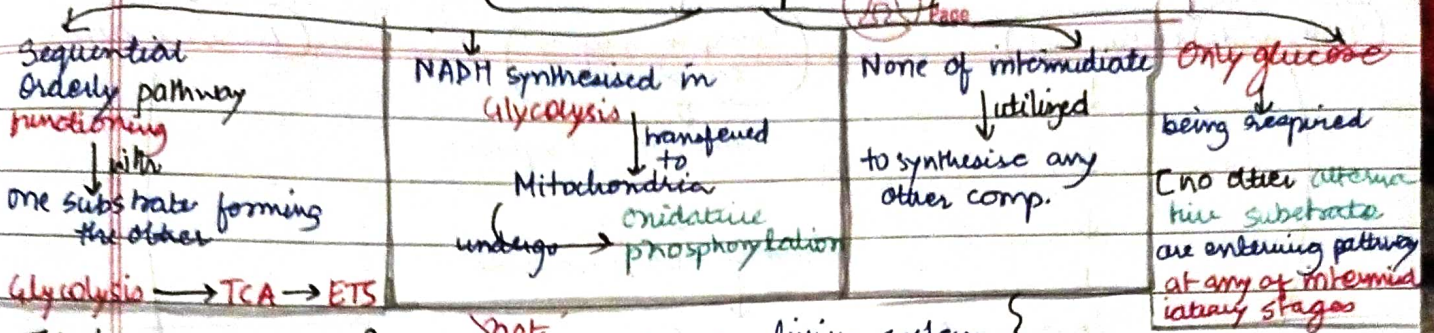 Page
Sequential
Orderly pathway
functioning
with
one substrate forming
the other
Glycolysis → TCA → ETS
NADH synthesised in
Glycolysis
transferred
to
Mitochondria
undergo → oxidative
phosphorylation
None of intermediate
utilized
to synthesise any
other comp.
Only glucose
being respired
[no other alterna
tive substrate
are entering pathway
at any of intermid
iatary stages
not